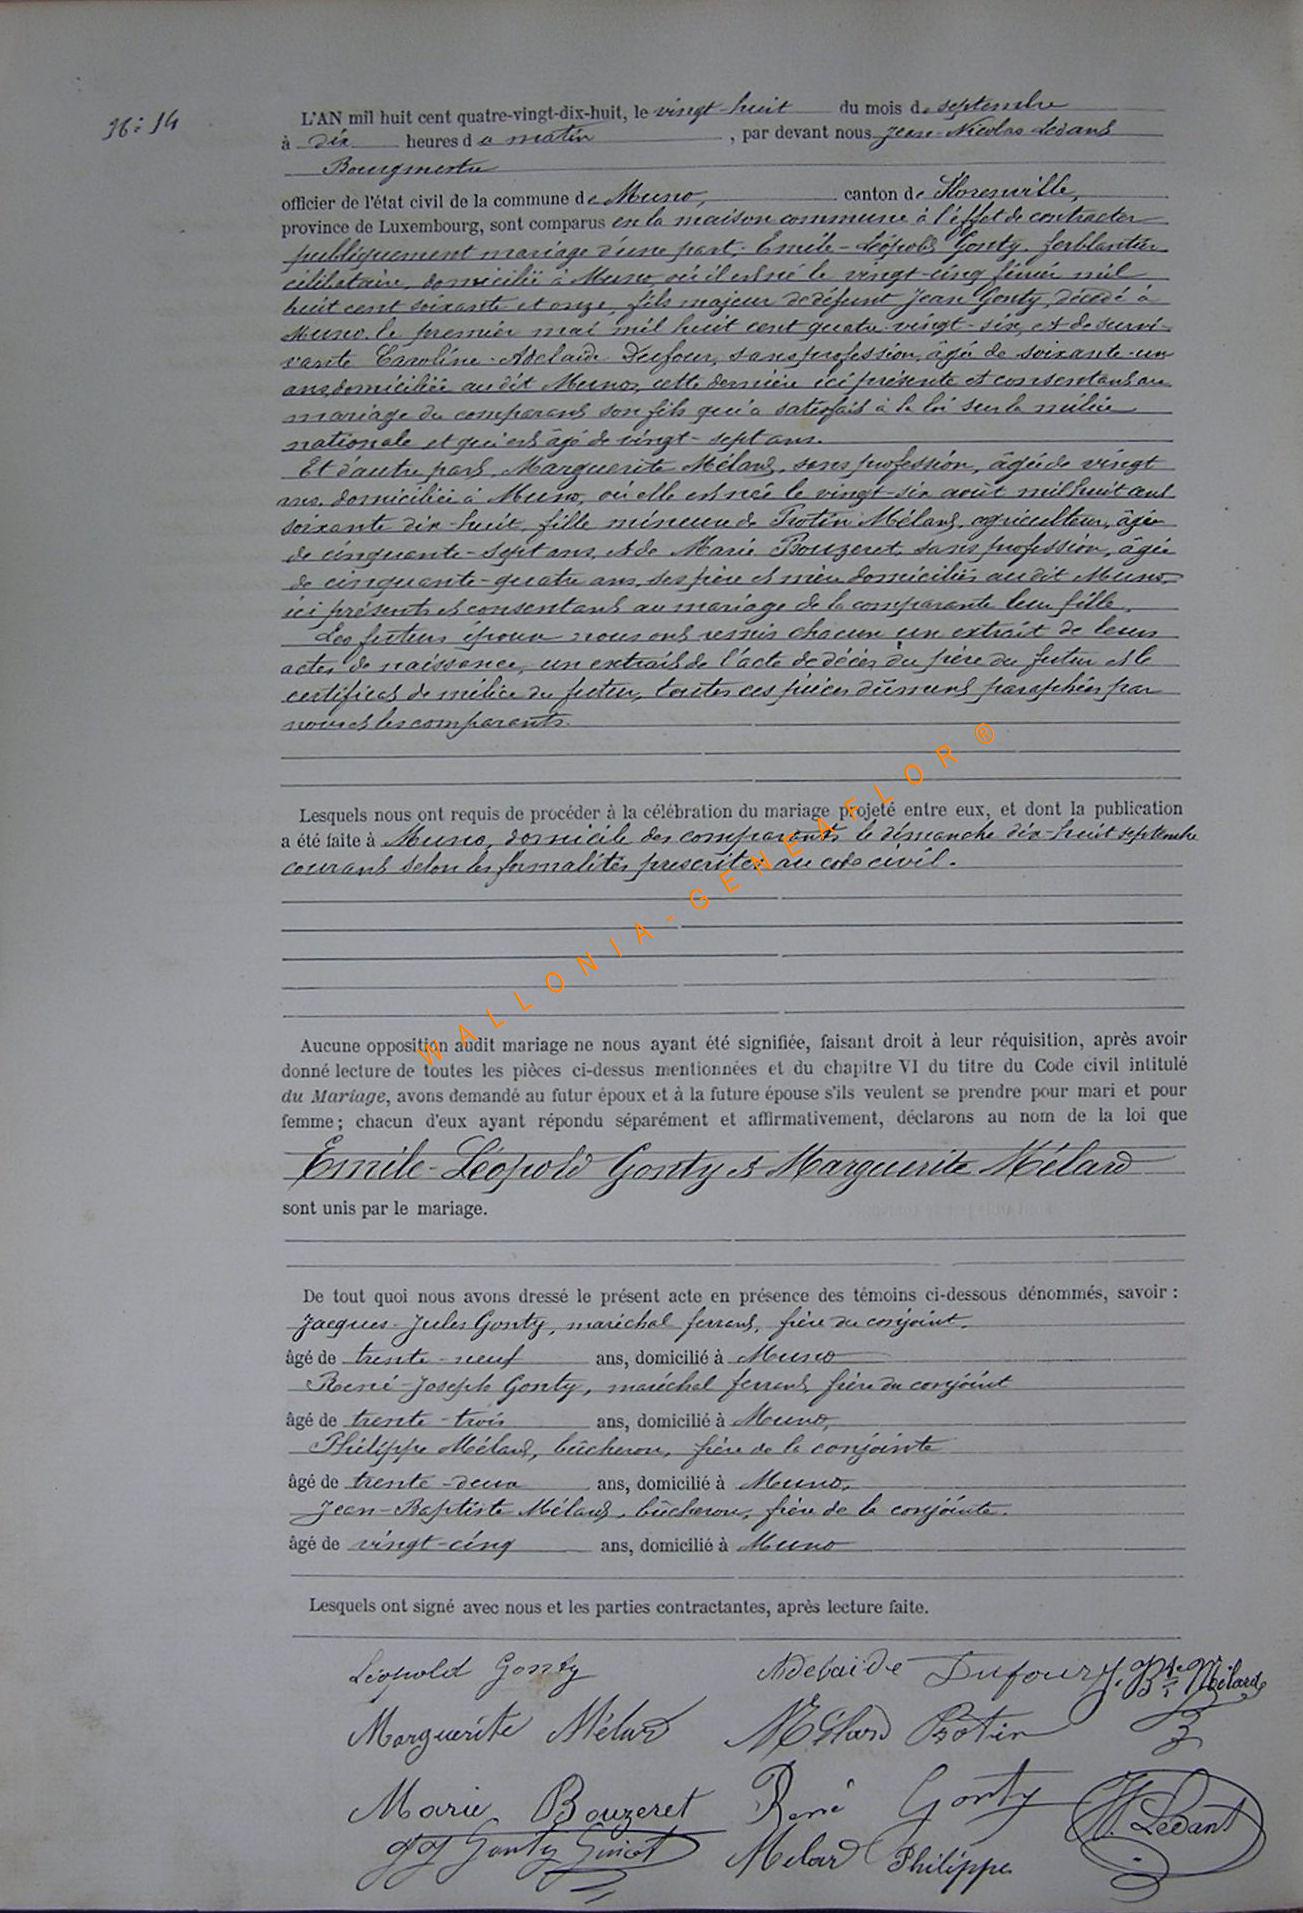 96: 14
L'AN mil huit cent quatre-vingt-dix-huit, le vingt-huit du mois de septembre
à dix heures du matin, par devant nous Jean-Nicolas Ledant
Bourgmestre
officier de l'état civil de la commune de Muno, canton de Florenville,
province de Luxembourg, sont comparus en la maison commune à l'effet de contracter
publiquement mariage d'une part, Emile-Léopold Gonty, ferblantier
célibataire, domicilié à Muno, où il est né le vingt-cinq février mil
huit cent soixante et onze, fils majeur de défunt Jean Gonty, décédé à
Muno, le premier mai mil huit cent quatre-vingt-six, et de survi-
vante Caroline-Adelaïde Dufour, sans profession, âgée de soixante-un
ans, domiciliée audit Muno, cette dernière ici présente et consentant au
mariage du comparant son fils qui a satisfait à la loi sur la milice
nationale et qui est âgé de vingt-sept ans.
Et d'autre part, Marguerite Mélard, sans profession, âgée de vingt
ans, domiciliée à Muno, où elle est née le vingt-six août mil huit cent
soixante dix-huit, fille mineure de Protin Mélard, agriculteur, âgé
de cinquante-sept ans, et de Marie Bouzeret, sans profession, âgée
de cinquante-quatre ans, ses père et mère domiciliés audit Muno,
ici présents et consentant au mariage de la comparante leur fille.
Les futurs époux nous ont remis chacun un extrait de leurs
actes de naissance, un extrait de l'acte de décès du père du futur et le
certificat de milice du futur, toutes ces pièces dûment paraphées par
nous et les comparants.
Lesquels nous ont requis de procéder à la célébration du mariage projeté entre eux, et dont la publication
a été faite à Muno, domicile des comparants le dimanche dix-huit septembre
courant selon les formalités prescrites au code civil.
WALLONIA-GENEAFLOR ®
Aucune opposition audit mariage ne nous ayant été signifiée, faisant droit à leur réquisition, après avoir
donné lecture de toutes les pièces ci-dessus mentionnées et du chapitre VI du titre du Code civil intitulé
du Mariage, avons demandé au futur époux et à la future épouse s'ils veulent se prendre pour mari et pour
femme; chacun d'eux ayant répondu séparément et affirmativement, déclarons au nom de la loi que
Emile-Léopold Gonty et Marguerite Mélard
sont unis par le mariage.
De tout quoi nous avons dressé le présent acte en présence des témoins ci-dessous dénommés, savoir :
Jacques-Jules Gonty, maréchal ferrant, frère du conjoint.
âgé de trente-neuf ans, domicilié à Muno
René-Joseph Gonty, maréchal ferrant, frère du conjoint
âgé de trente-trois ans, domicilié à Muno,
Philippe Mélard, bûcheron, frère de la conjointe
âgé de trente-deux ans, domicilié à Muno,
Jean-Baptiste Mélard, bûcheron, frère de la conjointe.
âgé de vingt-cinq ans, domicilié à Muno
Lesquels ont signé avec nous et les parties contractantes, après lecture faite.
Léopold Gonty Adelaïde Dufour J. Bte Mélard
Marguerite Mélard Mélard Protin
Marie Bouzeret René Gonty N. Ledant
Gonty Melard Philippe